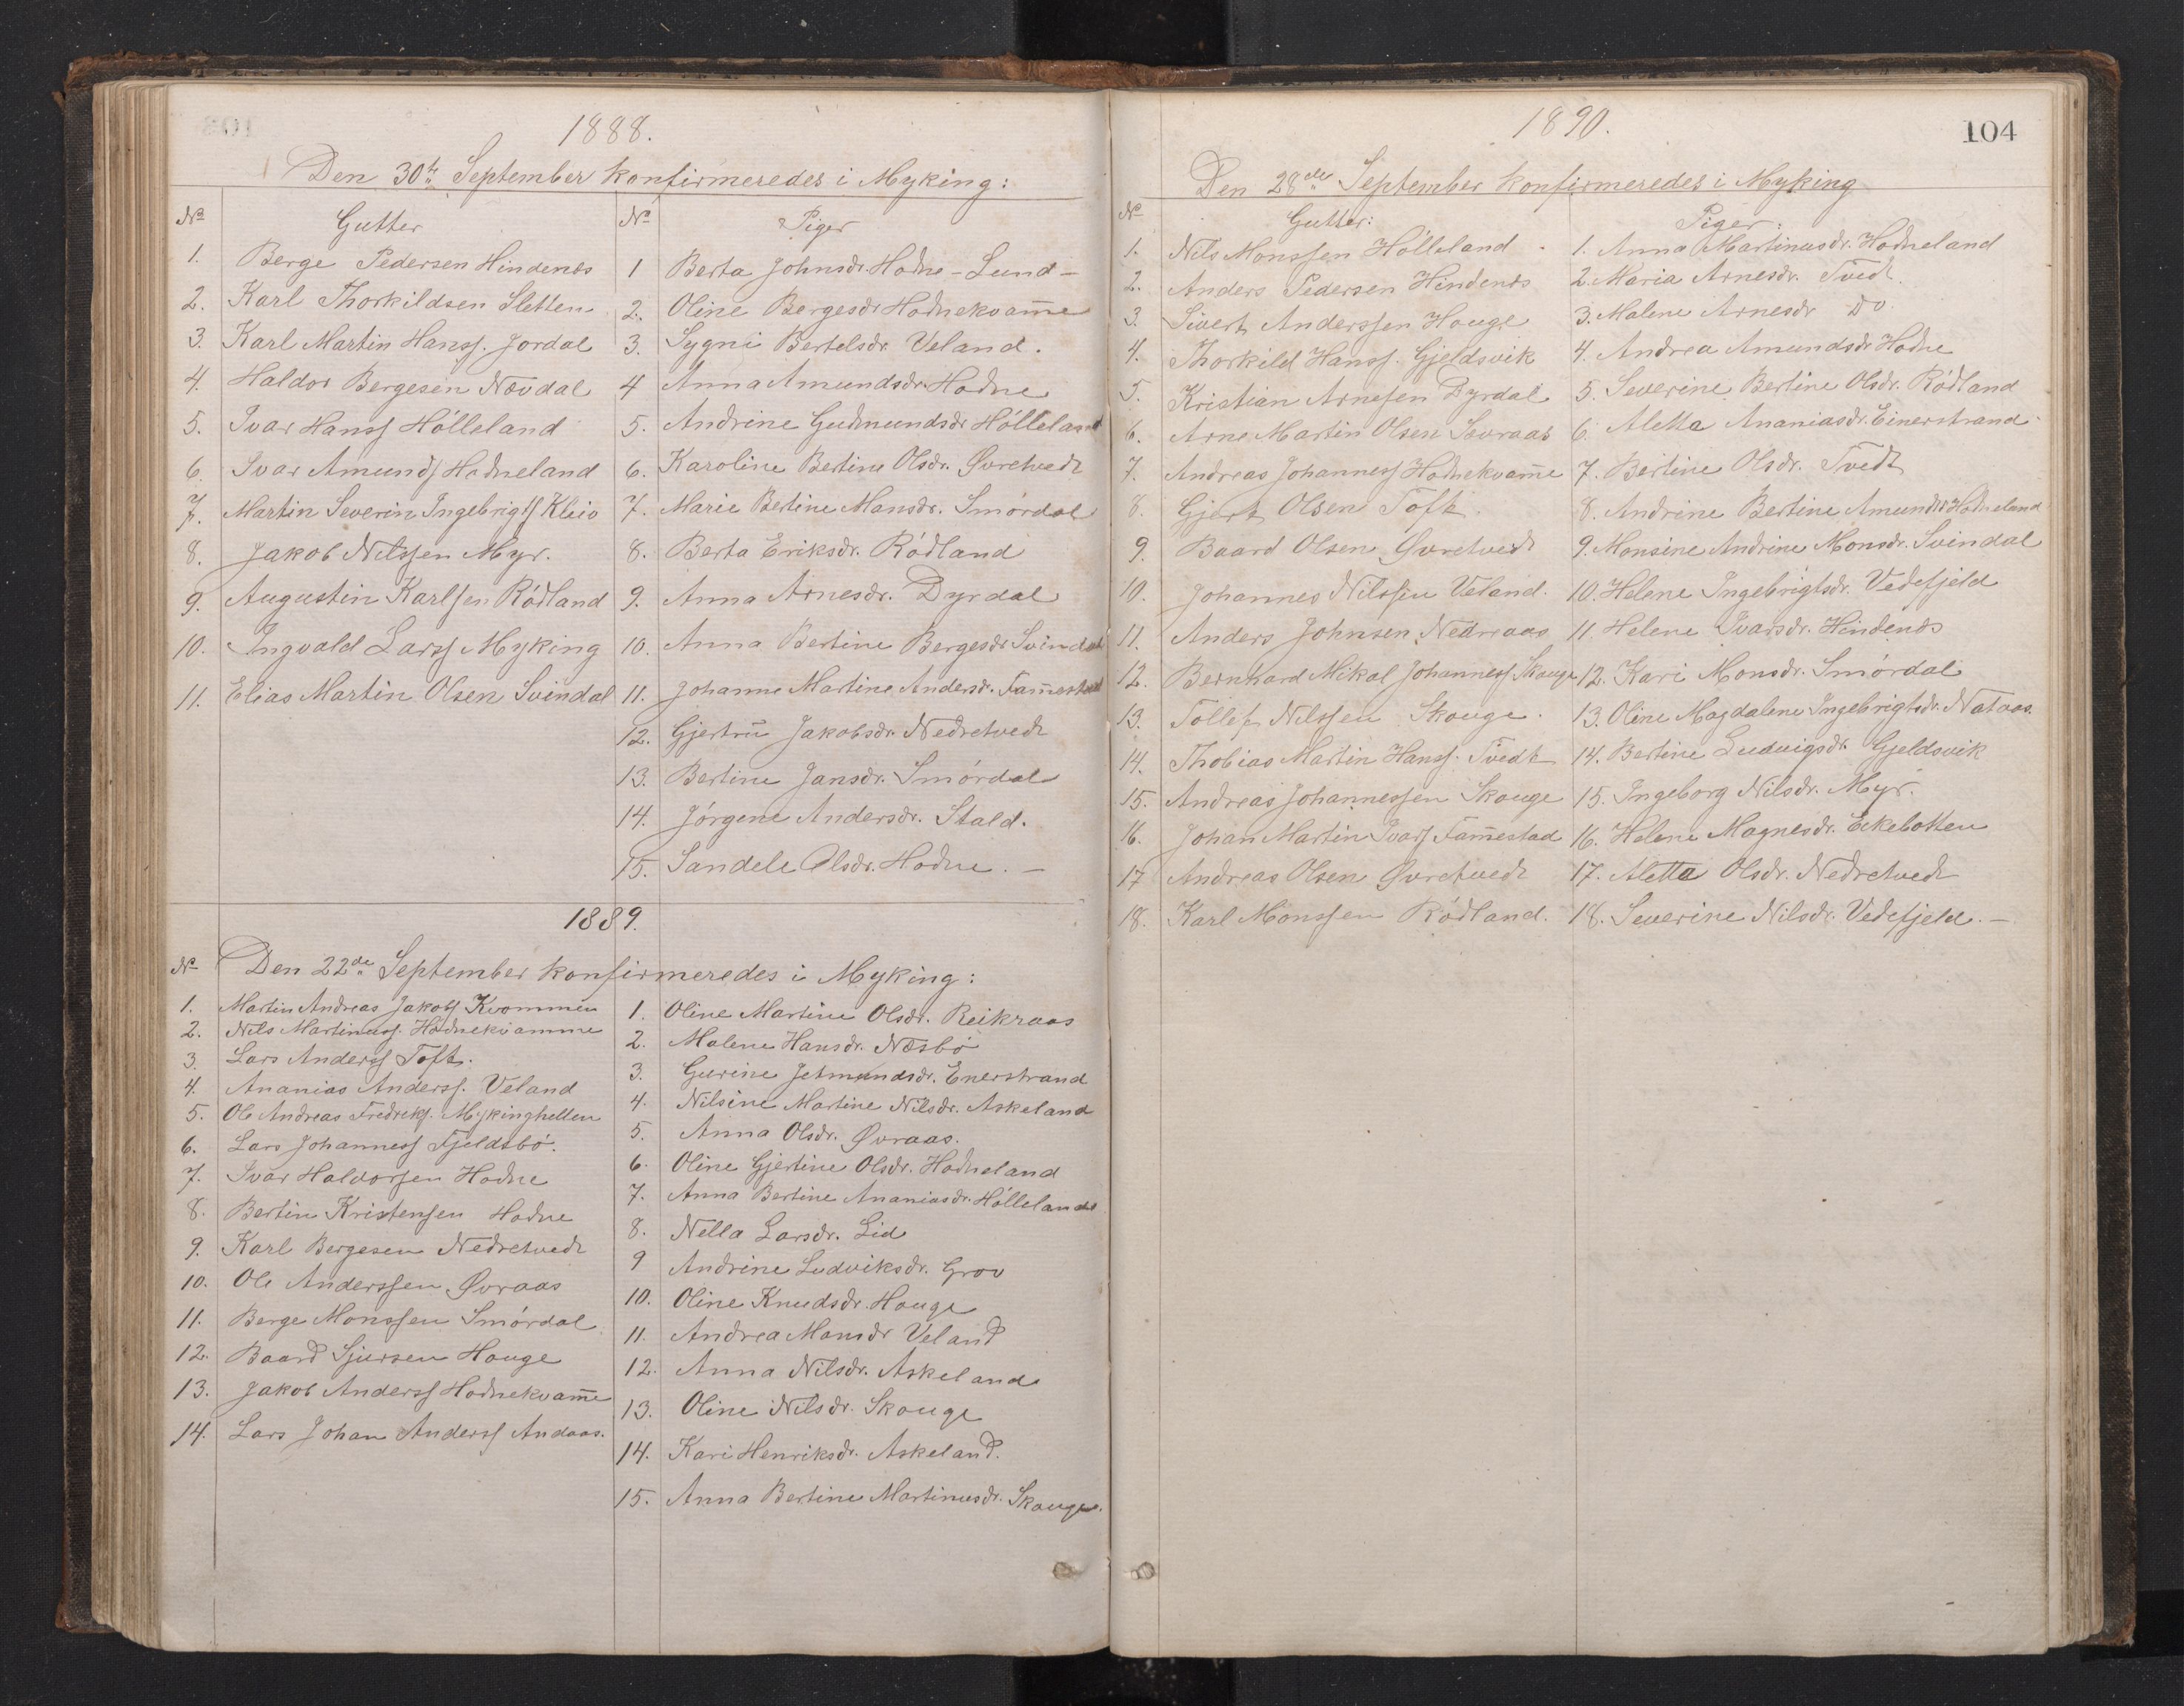 1888.
Den 30te September konfirmeredes i Myking:
No Gutter
1. Berge Pedersen Hindenes
2. Karl Thorkildsen Sletten
3. Karl Martin Hanss. Jordal
4. Haldor Bergesen Nævdal
5. Ivar Hanss Hólleland
6. Ivar Amunds Hodneland
7. Martin Severin Ingebrigts Kleiv
8. Jakob Nilssen Myr.
9. Augustin Karlsen Ródland
10. Ingvald Larss Myking
11. Elias Martin Olsen Svindal
No Piger
1 Berta Johnsdr. Hodne - Lund -
2. Oline Bergesdr Hodnekvam̅e
3. Sygni Bertelsdr. Veland.
4 Anna Amundsdr. Hodne
5. Andrine Gudmundsdr Hólleland
6. Karoline Bertine Olsdr. Øvretvedt
7. Marie Bertine Mansdr. Smórdal
8. Berta Eriksdr. Ródland
9. Anna Arnesdr. Dyrdal
10. Anna Bertine Bergesdr Svindal
11. Johanne Martine Andersdr. Fam̅estad
12. Gjertru Jakobsdr. Nedretvedt
13. Bertine Jansdr. Smórdal
14. Jórgene Andersdr. Stald.
15. Sandele Olsdr. Hodne. -
1889.
No Den 22de September konfirmeredes i Myking:
1. Martin Andreas Jakobs Kvommen
2. Nils Martinuss. Hodnekvamme
3 Lars Anderss Toft.
4. Ananias Anderss. Veland
5. Ole Andreas Fredriks. Mykinghellen
6. Lars Johanness Fjeldsbó.
7. Ivar Haldorsen Hodne
8. Bertin Kristensen Hodne
9. Karl Bergesen Nedretvedt
10. Ole Anderssen Øvraas
11. Berge Monssen Smórdal
12. Baard Sjursen Houge
13. Jakob Anderss Hodnekvam̅e
14. Lars Johan Anderss Andaas.
1. Oline Martine Olsdr. Reikraas
2. Malene Hansdr. Næsbó
3. Gurine Jetmundsdr. Enerstrand
4. Nilsine Martine Nilsdr. Askeland
5. Anna Olsdr. Øvraas.
6. Oline Gjertine Olsdr. Hodneland
7. Anna Bertine Ananiasdr. Hólleland
8. Nella Larsdr. Lid
9 Andrine Ludviksdr. Grov
10. Oline Knudsdr. Houge
11. Andrea Monsdr Veland
12. Anna Nilsdr. Askeland
13. Oline Nilsdr. Skouge
14. Kari Henriksdr. Askeland.
15. Anna Bertine Martinusdr. Skouge.
1890.
104
Den 28de September konfirmeredes i Myking
No Gutter:
1. Nils Monssen Hólleland
2. Anders Pedersen Hindenes
3. Sivert Anderssen Houge
4. Thorkild Hanss. Gjeldsvik
5. Kristian Arnesen Dyrdal
6. Arne Martin Olsen Sævraas
7. Andreas Johanness Hodnekvam̅e
8. Gjert Olsen Toft.
9. Baard Olsen Øvretvedt
10. Johannes Nilssen Veland.
11. Anders Johnsen Nedreaas
12. Bernhard Mikal Johanness Skouge
13. Tollef Nilssen Skouge.
14. Thobias Martin Hanss. Tvedt
15. Andreas Johannessen Skouge
16. Johan Martin Ivars Fam̅estad
17 Andreas Olsen Øvretvedt
18. Karl Monssen Ródland.
Piger:
1. Anna Martinusdr. Hodneland
2. Maria Arnesdr. Tvedt.
3. Malene Arnesdr Do
4. Andrea Amundsdr Hodne
5. Severine Bertine Olsdr. Ródland
6. Aletta Ananiasdr. Einerstrand
7. Bertine Olsdr. Tvedt
8. Andrine Bertine Amundsdr Hodneland
9. Monsine Andrine Monsdr. Svindal
10. Helene Ingebrigtsdr. Vedefjeld
11. Helene Ivarsdr. Hindenes
12. Kari Monsdr. Smórdal
13. Oline Magdalene Ingebrigtsdr. Nataas.
14. Bertine Ludvigsdr. Gjeldsvik
15. Ingeborg Nilsdr. Myr.
16. Helene Magnesdr. Eckebotten
17. Aletta Olsdr. Nedretvedt
18. Severine Nilsdr. Vedefjeld. -